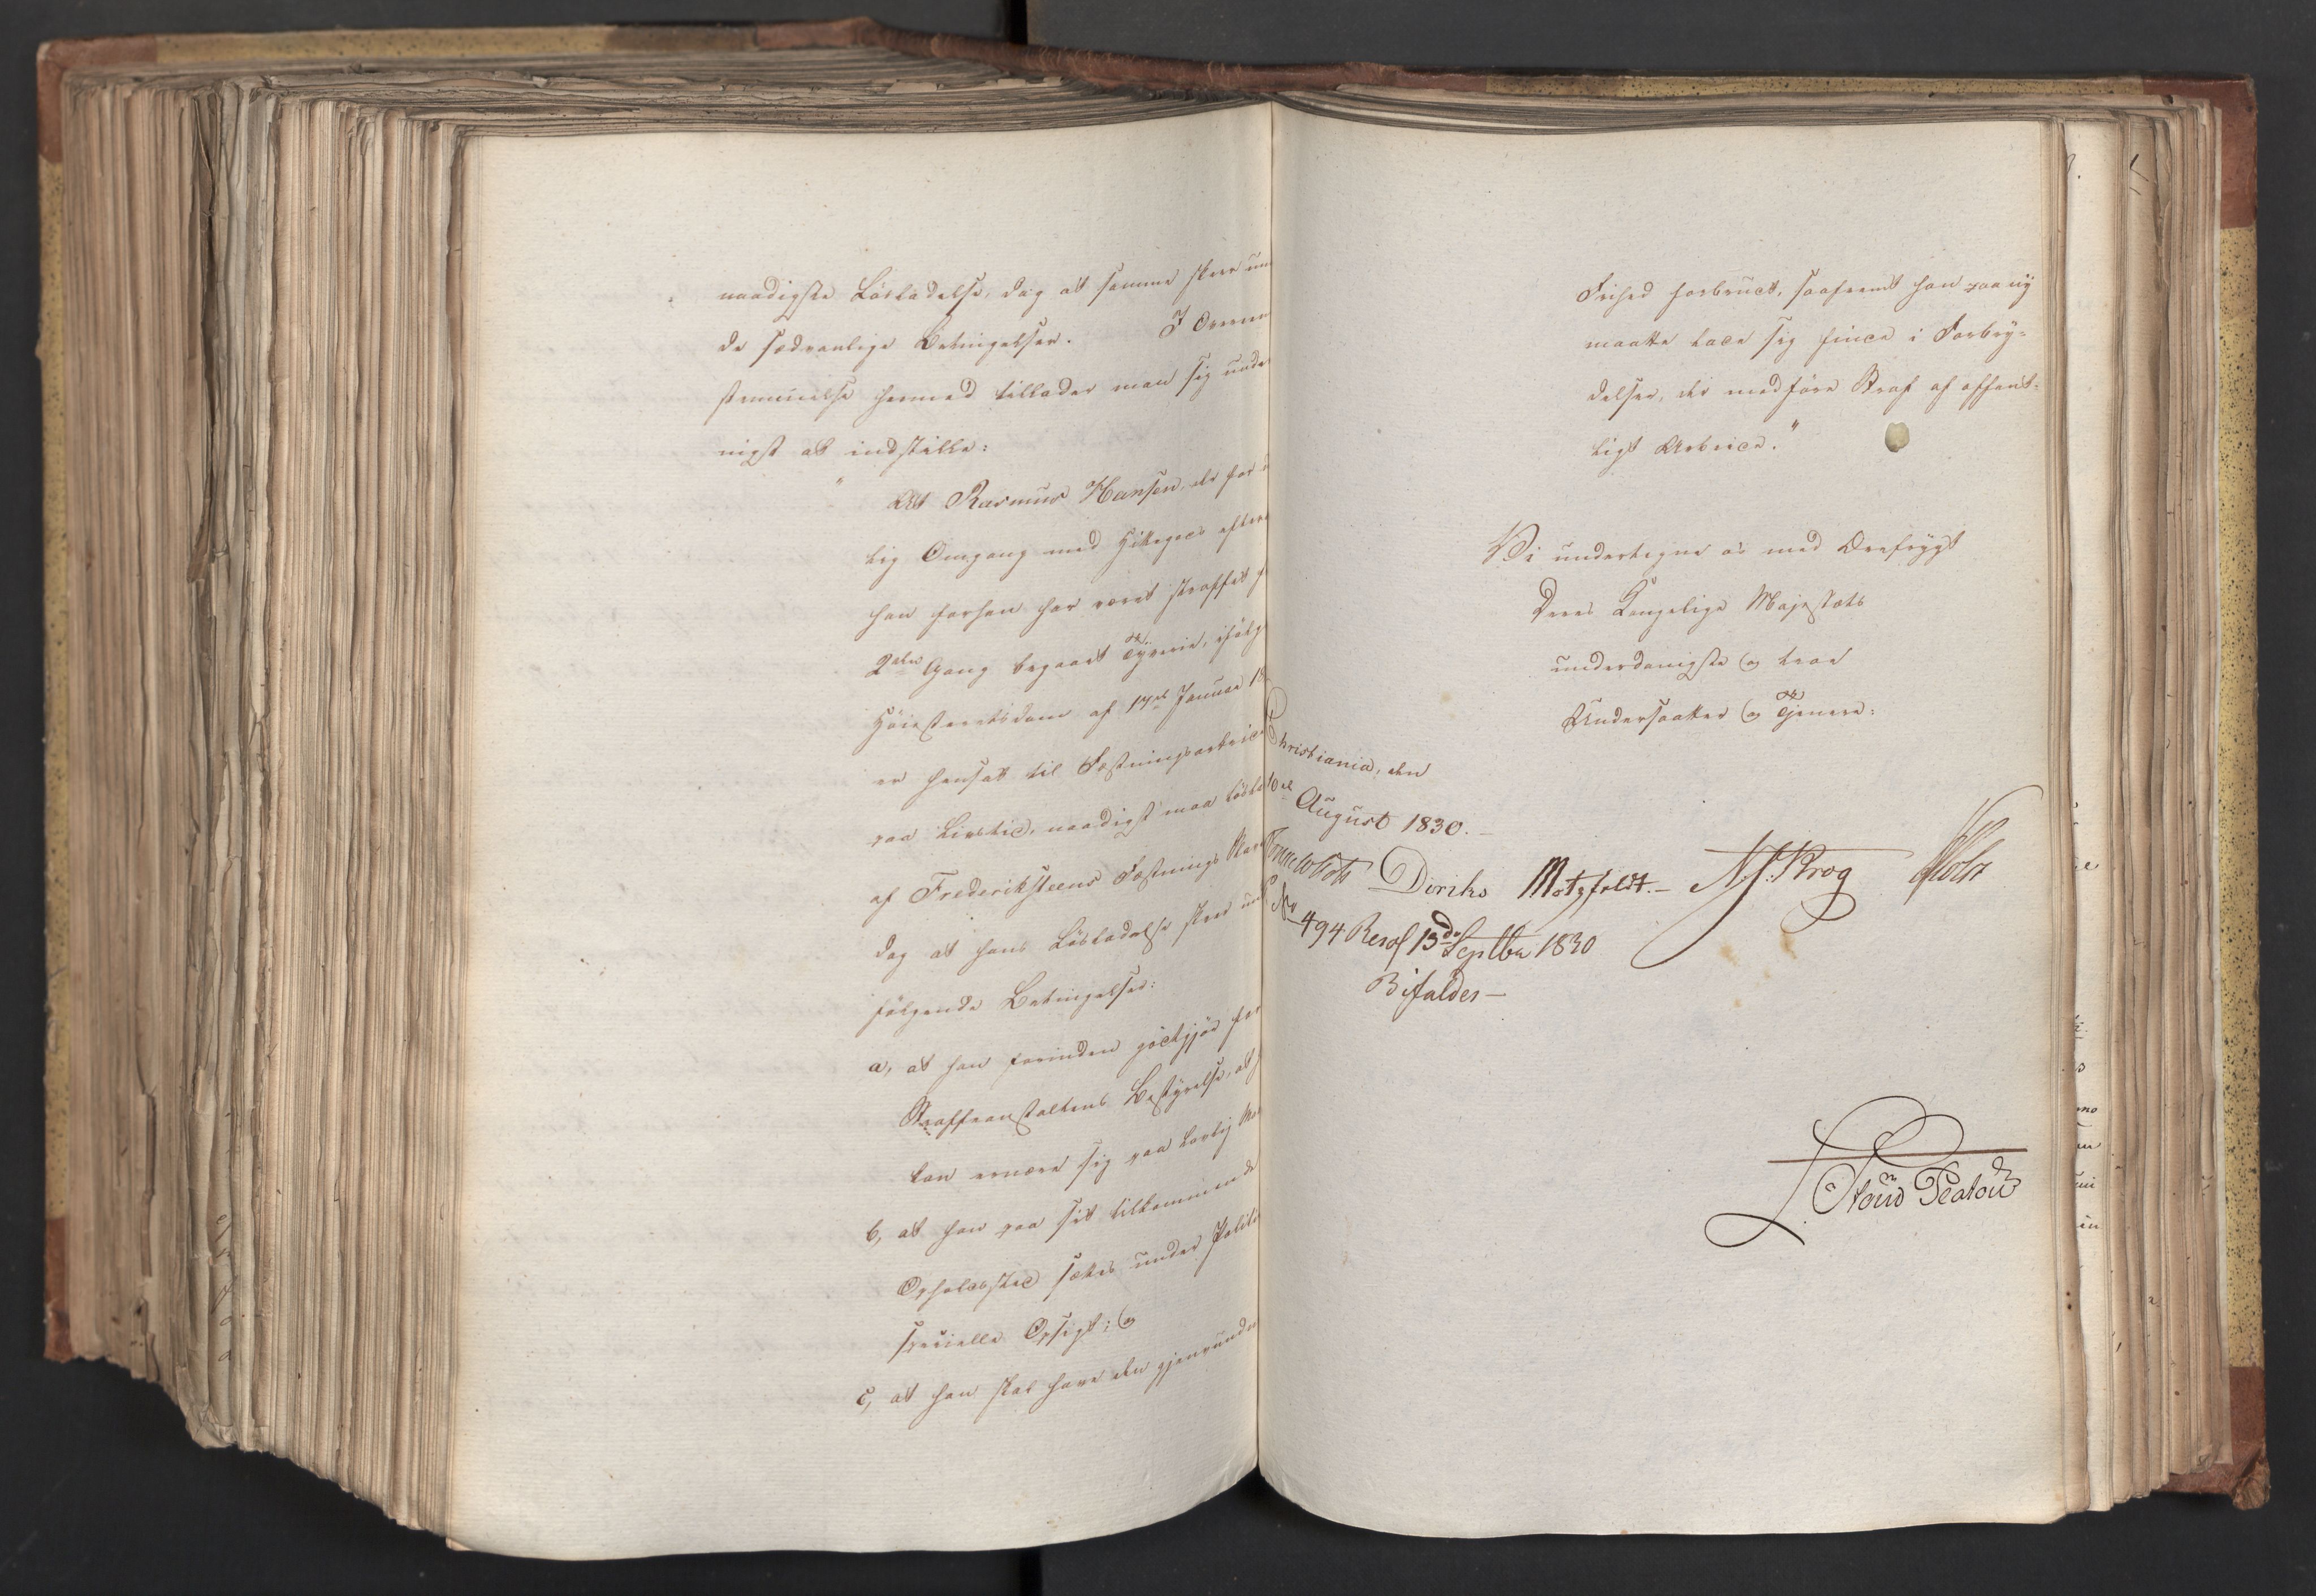 naadigste Løsladelse, dog at samme skeer un
de sædvanlige Betingelser. I Overeen
stemmelse hermed tillader man sig unde
nigst at indstille:
" At Rasmus Hansen, der for
lig Omgang med Hittegods eftera
han forhen har været straffet f
2den Gang begaaet Tyverie, ifølg
Høiesteretsdom af 17de Januar 18
er hensat til Fæstningsarbeide
paa Livstid, naadigst maa løsla
af Frederiksteens Fæstnings Slav
dog at hans Løsladelse skeer und
følgende Betingelser:
a, at han forinden godtgjør for
Straffeanstaltens Bestyrelse, at h
kan ernære sig paa lovlig Maa
b, at han paa sit tilkommende
Opholdssted sættes under Politi
specielle Opsigt; og
c, at han skal have den gjenvundn
Frihed forbrudt, saafremt han paa ny
maatte lade sig finde i Forbry-
delser, der medføre Straf af offent-
ligt Arbeide."
Vi undertegne os med Ærefrygt
Deres Kongelige Majestæts
underdanigste og troe
Undersaatter og Tjenere:
Christiania, den
10de August 1830.
Diriks Motzfeldt. Krog Holst
No 494 Resol 13de Septbr 1830
Bifaldes